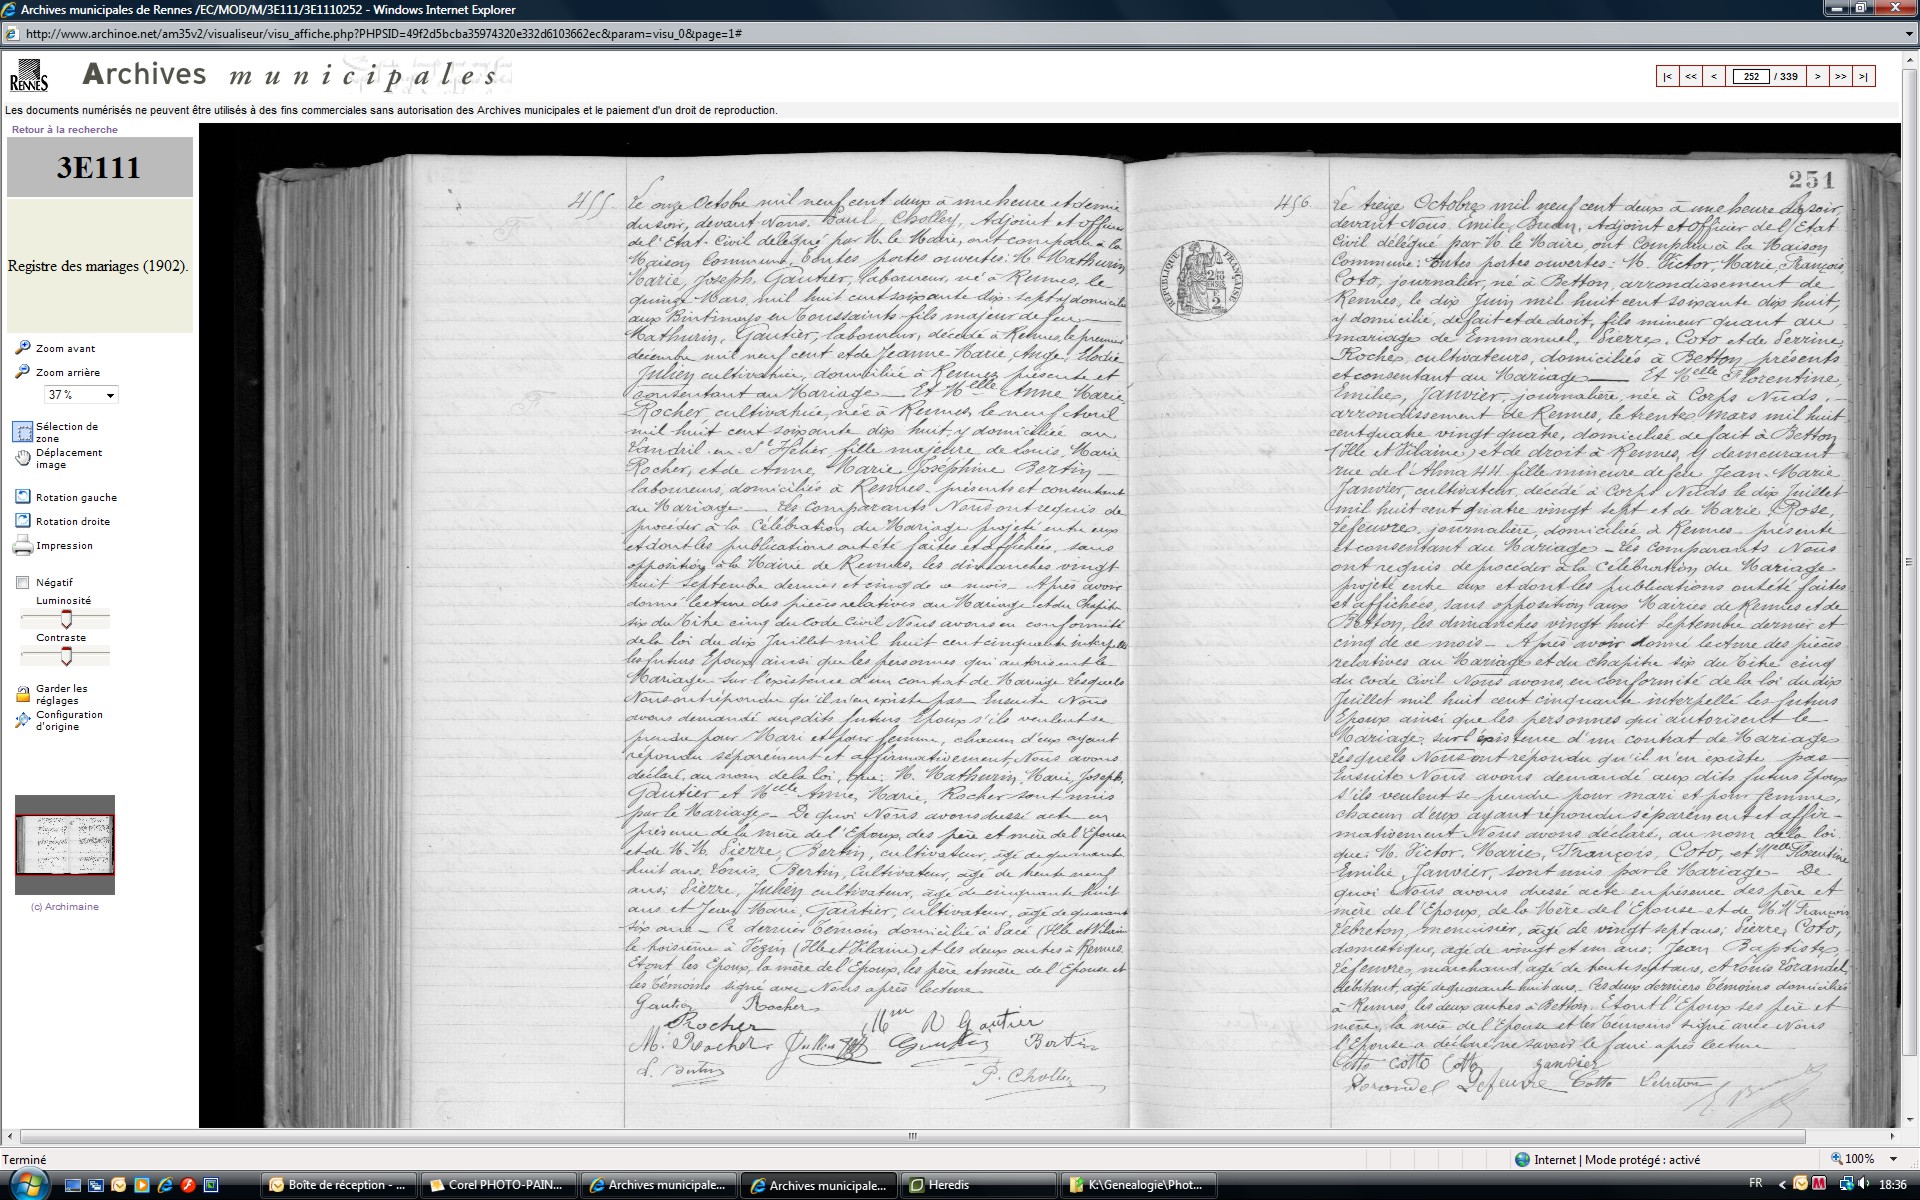 Archives municipales de Rennes /EC/MOD/M/3E111/3E1110252 - Windows Internet Explorer
http://www.archinoe.net/am35v2/visualiseur/visu_affiche.php?PHPSID=49f2d5bcba35974320e332d6103662ec&param=visu_0&page=1#
RENNES
Archives municipales
|< << < 252 / 339 > >> >|
Les documents numérisés ne peuvent être utilisés à des fins commerciales sans autorisation des Archives municipales et le paiement d'un droit de reproduction.
Retour à la recherche
3E111
Registre des mariages (1902).
Zoom avant
Zoom arrière
37 %
Sélection de
zone
Déplacement
image
Rotation gauche
Rotation droite
Impression
Négatif
Luminosité
Contraste
Garder les
réglages
Configuration
d'origine
(c) Archimaine
455.
Le onze Octobre mil neuf cent deux à une heure et demie
du soir, devant Nous. Paul, Cholley, Adjoint et Officier
de l'Etat-Civil délégué par M. le Maire, ont comparu à la
Maison Commune. Toutes portes ouvertes: M. Mathurin
Marie, Joseph, Gautier, laboureur, né à Rennes, le
quinze Mars, mil huit cent soixante dix-sept y domicilié
aux en Toussaints fils majeur de feu
Mathurin, Gautier, laboureur, décédé à Rennes, le premier
décembre mil neuf cent et de Jeanne Marie, Ange, Elodie
Julien cultivatrice, domiciliée à Rennes présente et
consentant au Mariage — Et Melle Anne Marie,
Rocher, cultivatrice, née à Rennes, le neuf Avril
mil huit cent soixante dix huit, y domiciliée au
en St Hélier, fille majeure de Louis, Marie
Rocher, et de Anne, Marie Joséphine Bertin —
laboureurs, domiciliés à Rennes, présents et consentant
au Mariage — Les comparants Nous ont requis de
procéder à la Célébration du Mariage projeté entre eux
et dont les publications ont été faites et affichées, sans
opposition, à la Mairie de Rennes, les dimanches vingt
huit Septembre dernier et cinq de ce mois — Après avoir
donné lecture des pièces relatives au Mariage et du Chapitre
six du Titre cinq du Code Civil Nous avons en conformité
de la loi du dix Juillet mil huit cent cinquante interpellé
les futurs Epoux, ainsi que les personnes qui autorisent le
Mariage sur l'existence d'un contrat de Mariage Lesquels
Nous ont répondu qu'il n'en existe pas Ensuite Nous
avons demandé aux dits futurs Epoux s'ils veulent se
prendre pour Mari et pour femme, chacun d'eux ayant
répondu séparément et affirmativement, Nous avons
déclaré, au nom de la loi, que: M. Mathurin, Marie, Joseph,
Gautier et Melle Anne, Marie, Rocher sont unis
par le Mariage — De quoi Nous avons dressé acte en
présence de la mère de l'Epoux, des père et mère de l'Epouse
et de M.M. Pierre, Bertin, cultivateur, âgé de quarante
huit ans, Louis, Bertin, Cultivateur, âgé de trente neuf
ans; Pierre, Julien, cultivateur, âgé de cinquante huit
ans et Jean Marie, Gautier, cultivateur, âgé de quarante
six ans — Ce dernier Témoin domicilié à Pacé (Ille et Vilaine)
le troisième à Vezin (Ille et Vilaine) et les deux autres à Rennes.
Et ont les Epoux, la mère de l'Epoux, les père et mère de l'Epouse et
les témoins signé avec Nous après lecture
Gautier Rocher
Rocher Gautier
M. Rocher Bertin
P. Cholley
251
456.
RÉPUBLIQUE FRANÇAISE
Le treize Octobre, mil neuf cent deux à une heure du soir,
devant Nous Emile, Buan, Adjoint et Officier de l'Etat
Civil délégué par M. le Maire ont comparu à la Maison
Commune: toutes portes ouvertes: M. Victor, Marie, François,
Coto, journalier, né à Betton, arrondissement de
Rennes, le dix Juin mil huit cent soixante dix huit,
y domicilié, de fait et de droit, fils mineur quant au
mariage de Emmanuel, Pierre, Coto et de Perrine,
Roche, cultivateurs, domiciliés à Betton présents
et consentant au Mariage — Et Melle Florentine,
Emilie, Janvier, journalière, née à Corps Nuds, —
arrondissement de Rennes, le trente Mars mil huit
cent quatre vingt quatre, domiciliée de fait à Betton
(Ille et Vilaine) et de droit à Rennes, y demeurant
rue de l'Alma 44 fille mineure de feu Jean-Marie
Janvier, cultivateur, décédé à Corps Nuds le dix Juillet
mil huit cent quatre vingt sept et de Marie, Rose,
Lefeuvre, journalière, domiciliée à Rennes présente
et consentant au Mariage — Les comparants Nous
ont requis de procéder à la Célébration du Mariage
projeté entre eux et dont les publications ont été faites
et affichées, sans opposition, aux Mairies de Rennes et de
Betton, les dimanches vingt huit Septembre dernier et
cinq de ce mois — Après avoir donné lecture des pièces
relatives au Mariage et du chapitre six du Titre cinq
du Code Civil Nous avons, en conformité de la loi du dix
Juillet mil huit cent cinquante interpellé les futurs
Epoux ainsi que les personnes qui autorisent le
Mariage, sur l'existence d'un contrat de Mariage
Lesquels Nous ont répondu qu'il n'en existe pas
Ensuite Nous avons demandé aux dits futurs Epoux
s'ils veulent se prendre pour mari et pour femme,
chacun d'eux ayant répondu séparément et affir-
mativement Nous avons déclaré, au nom de la loi
que: M. Victor, Marie, François, Coto, et Melle Florentine
Emilie, Janvier, sont unis par le Mariage — De
quoi Nous avons dressé acte en présence des père et
mère de l'Epoux, de la Mère de l'Epouse et de M.M. François
Lebreton, menuisier, âgé de vingt sept ans; Pierre, Coto,
domestique, âgé de vingt et un ans; Jean Baptiste,
Lefeuvre, marchand, âgé de trente sept ans, et Louis Dorandel,
débitant, âgé de quarante huit ans. Ces deux derniers Témoins domiciliés
à Rennes, les deux autres à Betton. Et ont l'Epoux ses père et
mère, la mère de l'Epouse et les témoins signé avec Nous
l'Epouse a déclaré ne savoir le faire après lecture
Cotto Cotto Cotto Janvier
Dorandel Lefeuvre Cotto Lebreton
Terminé
Internet | Mode protégé : activé
100%
Boîte de réception - ...
Corel PHOTO-PAIN...
Archives municipale...
Archives municipale...
Heredis
K:\Genealogie\Phot...
FR
18:36